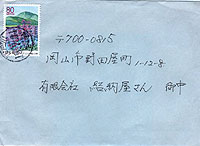 80
〒700-0815
岡山市野田屋町1-12-8
有限会社 結納屋さん 御中